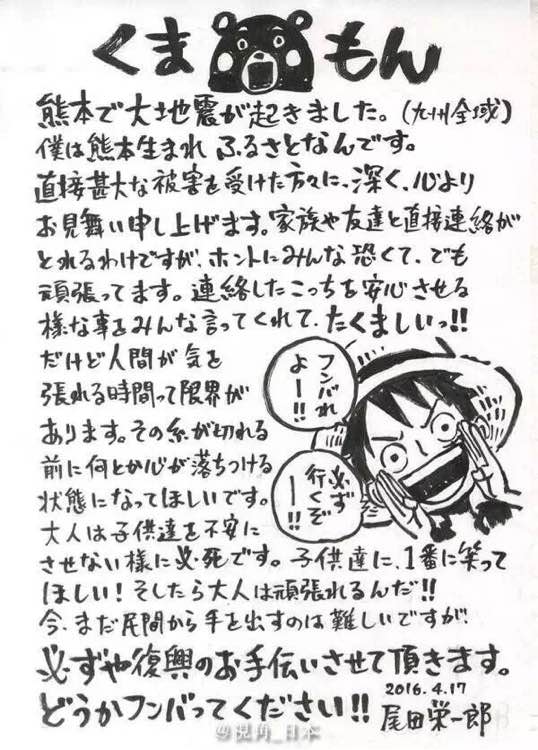 くまもん
熊本で大地震が起きました。(九州全域)
僕は熊本生まれ ふるさとなんです。
直接甚大な被害を受けた方々に、深く、心より
お見舞い申し上げます。家族や友達と直接連絡が
とれるわけですが、ホントにみんな恐くて、でも
頑張ってます。連絡したこっちを安心させる
様な事をみんな言ってくれて、たくましいっ!!
だけど人間が気を
張れる時間って限界が
あります。その糸が切れる
前に何とか心が落ちつける
状態になってほしいです。
大人は子供達を不安に
させない様に必死です。子供達に、1番に笑って
ほしい!そしたら大人は頑張れるんだ!!
今、まだ民間から手を出すのは難しいですが、
必ずや復興のお手伝いさせて頂きます。
どうかフンバってください!!
フンバれ
よー!!
必ず
行くぞ
ー!!
2016.4.17
尾田栄一郎
@視角_日本